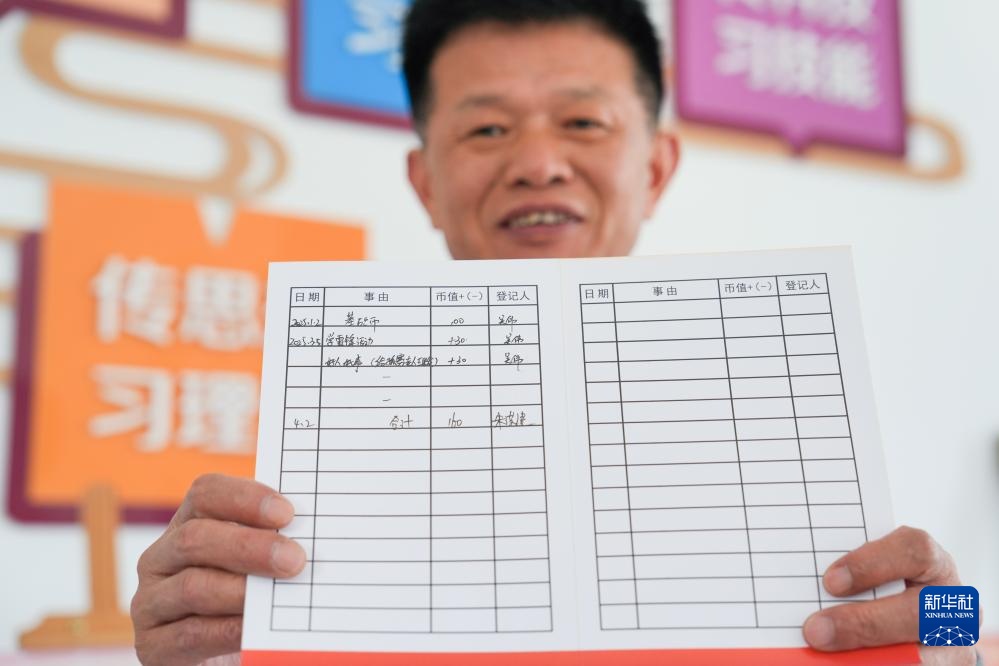 习技能
传思
习理
日期 事由 币值+(-) 登记人
2025.1.2 基础币 100 吴伟
2025.3.5 学雷锋活动 +30 吴伟
+30 吴伟
4.2 合计 160
日期 事由 币值+(-) 登记人
新华社
XINHUA NEWS